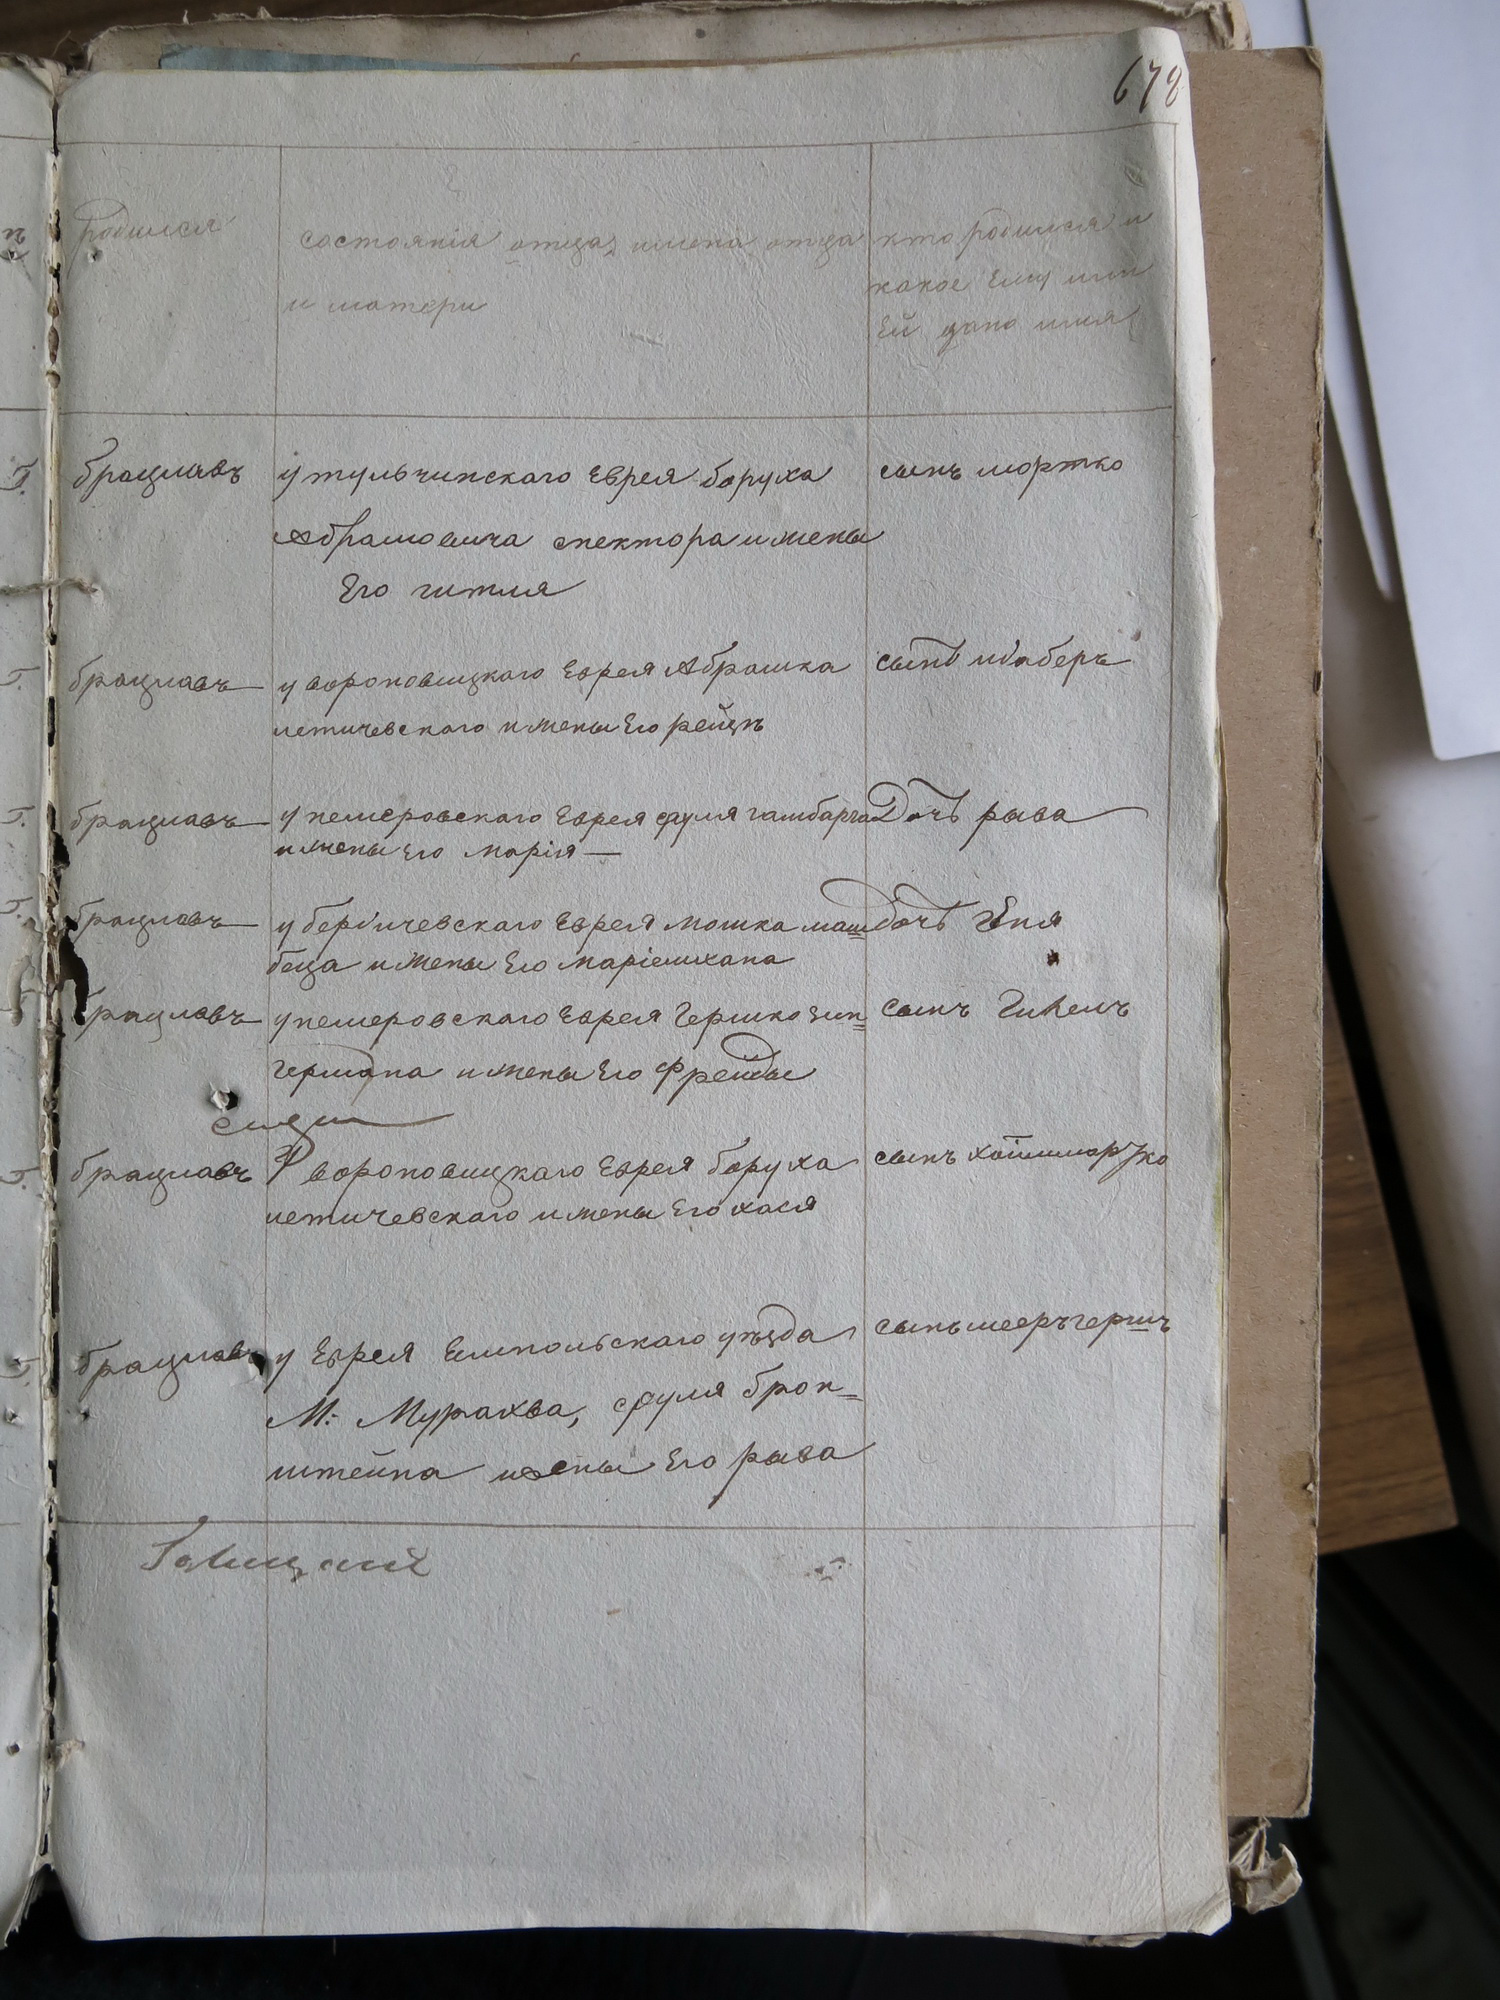 678
родился
состоянія отца, имена отца
и матери
кто родился и
какое ему или
ей дано имя
брацлавъ
у тульчинскаго Еврея боруха
Абрамовича спектора и жены
Его гитля
сынъ мортко
брацлавъ
у вороновицкаго Еврея Абрашка
летичевскаго и жены Его рейзи
сынъ шаберъ
брацлавъ
у немеровскаго Еврея сруля гамбарга
и жены Его марія
Дочь рыва
брацлавъ
у бердичевскаго Еврея мошка маш=
беца и жены Его маріемхана
дочь Геня
брацлавъ
у немеровскаго Еврея Гершко зин=
германа и жены Его Фрейды
сынъ Гивелъ
брацлавъ
У вороновицкаго Еврея боруха
летичевскаго и жены Его хася
сынъ хаймморжко
брацлавъ
у Еврея Емпольскаго уѣзда
М: Мурахва, сруля брон=
штейна и жены Его рыва
сынъ мееръ гершъ